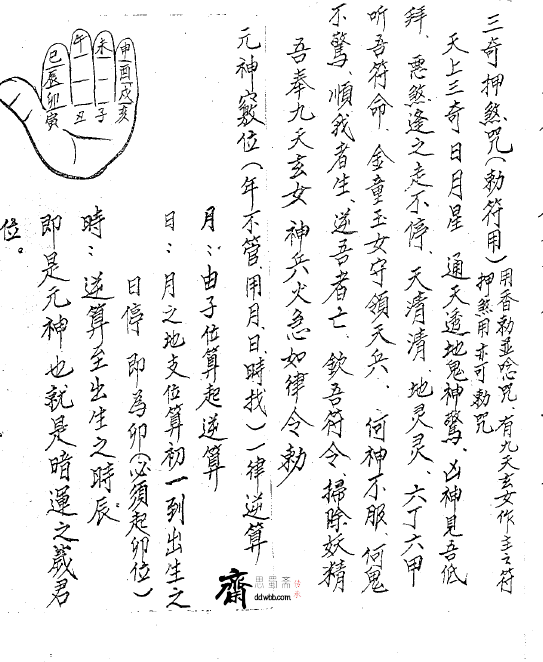 三奇押煞咒(勅符用)用香勅並唸咒 有九天玄女作主之符
押煞用亦可勅咒
天上三奇日月星 通天透地鬼神驚、凶神見吾低
拜、悪煞逢之走不停、天清清、地灵灵、六丁六甲
听吾符命、金童玉女守領天兵、何神不服、何鬼
不驚、順我者生、逆吾者亡、欽吾符令、掃除妖精
吾奉九天玄女 神兵火急如律令勅
元神竅位(年不管、用月、日、時找)一律逆算
月:由子位算起逆算
日:月之地支位算初一到出生之
日停 即為卯(必須起卯位)
時:逆算至出生之時辰。
即是元神也就是暗運之歲君
位。
巳 午 未 申
辰 酉
卯 戌
寅 丑 子 亥
齋 思蜀斋
ddwbb.com